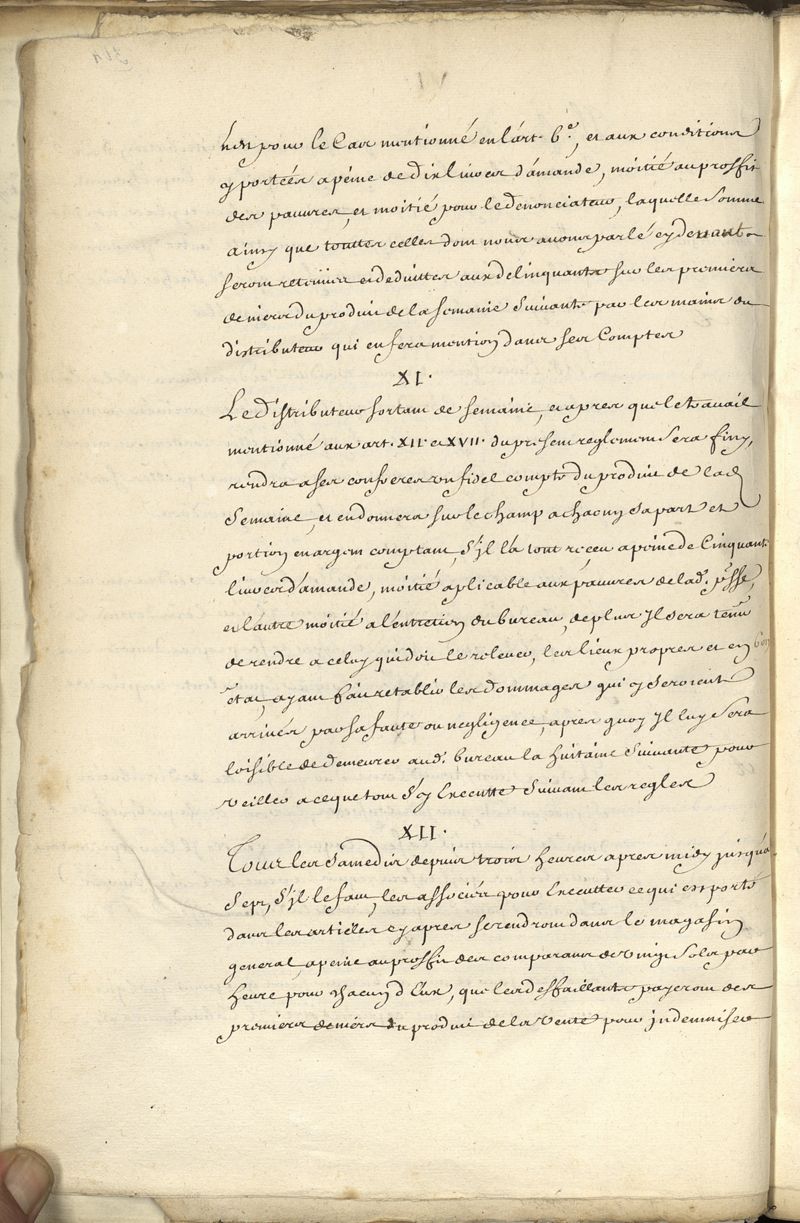 n'est pour le Cas mentionné en l'art. 6.e, et aux conditions
y portées a peine de Dix livres d'amande, moitié au proffit
des pauvres, et moitié pour le Denonciateur, laquelle Somme
ainsy que touttes celles dont nous avons parlé cy devant
seront retenües et deduittes aux delinquants sur les premiers
deniers du produit de la semaine Suivante par les mains du
distributeur qui en fera mention dans ses Comptes
XI.
Le Distributeur sortant de semaine, et apres que le travail
mentionné aux art. XII. et XVII. du present reglement Sera finy,
rendra a ses confreres un fidel compte du produit de lad.
Semaine, et en donnera sur le champ a chacun sa part et
portion en argent comptant, S'jl l'a tout receu a peine de Cinquante
livres d'amande, moitié aplicable aux pauvres de lad. psse,
et l'autre moitié a l'entretien du bureau, de plus Jl sera tenu
de rendre a celuy qui doit le relever, les lieux propres et en bon
état, ayant fait retablir les dommages qui y seroient
arrivés par sa faute ou negligence, apres quoy Jl luy sera
loisible de demeurer aud. bureau la huitaine Suivante pour
veiller a ce que tout S'y Execute Suivant les regles
XII.
Tous les Samedis depuis trois heures apres midy jusqu'a
Sept, S'jl le faut, les associés pour Executter ce qui est porté
dans les articles cy apres se rendront dans le magasin
general, a peine au proffit des comparans de vingt Sols par
heure pour chacun d'Eux, que les desfaillants payeront des
premiers deniers du produit de la Vente pour jndemniser